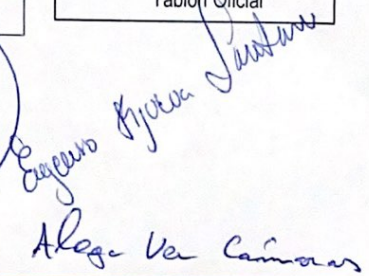 Tablón Oficial
Eugenio Santana
Alega Ver Camaras